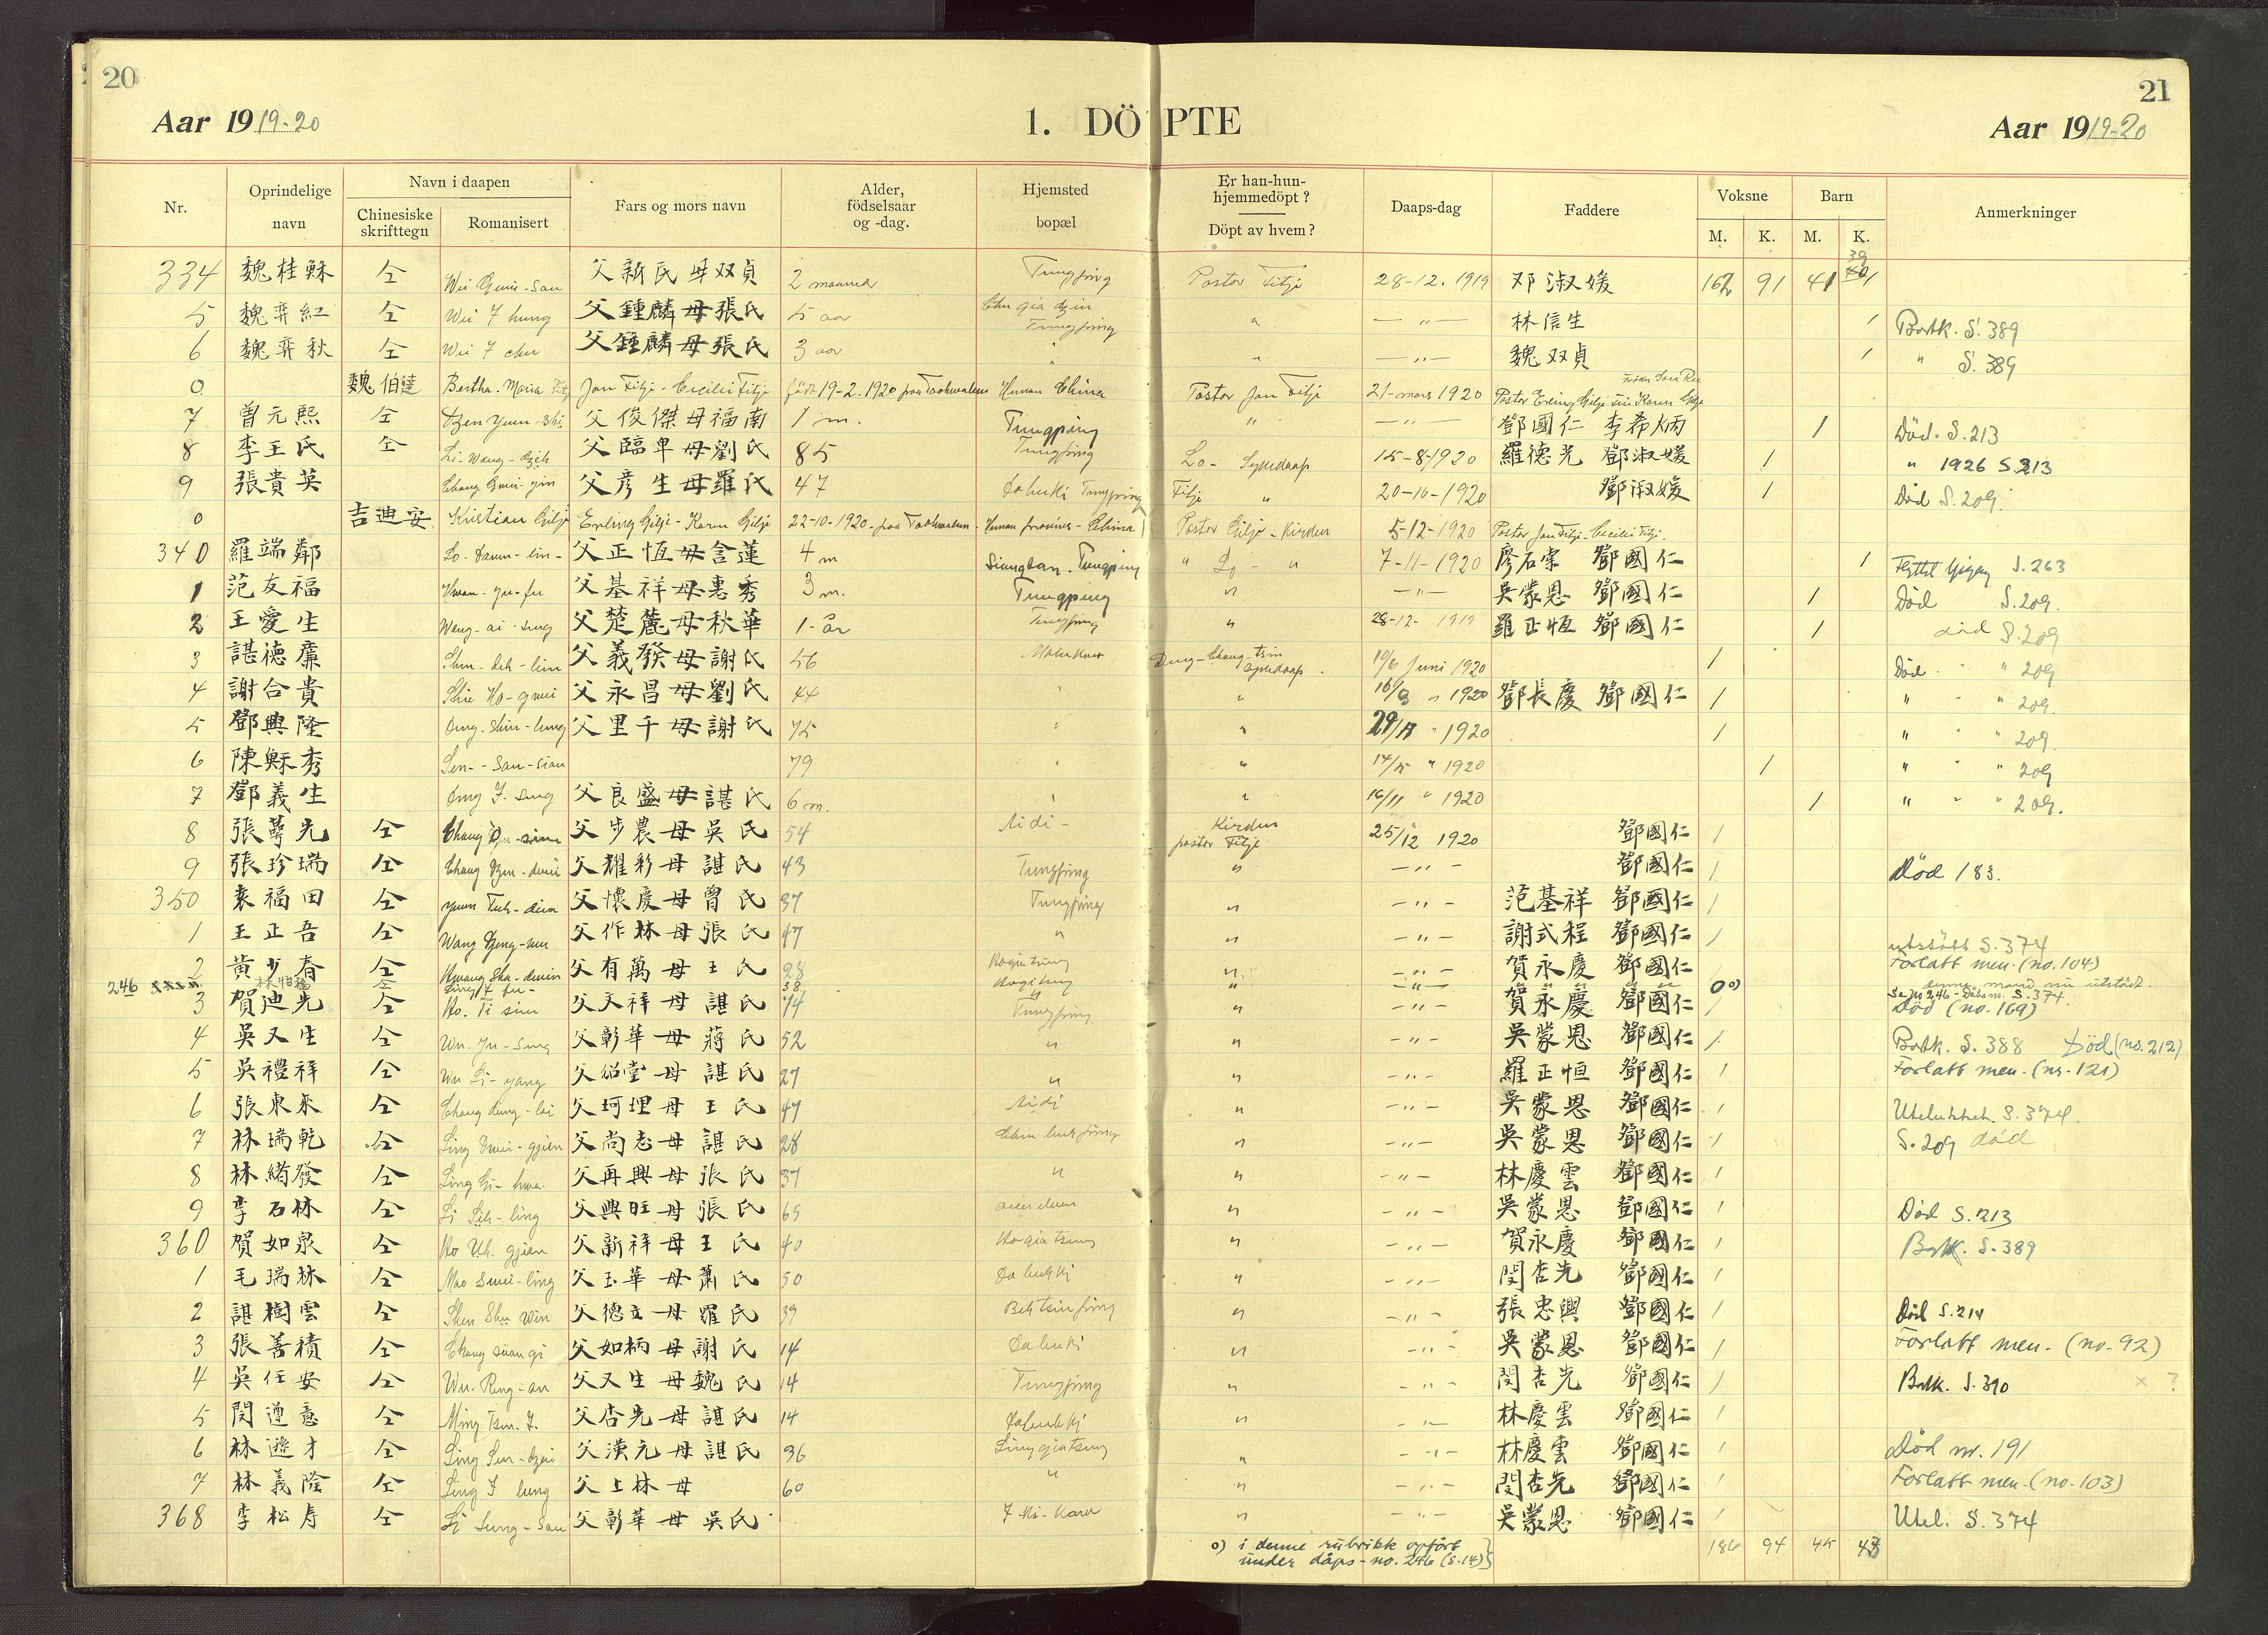 20
21
Aar 1919-20
1. DÖPTE
Aar 1919-20
Nr. Oprindelige navn Navn i daapen Chinesiske skrifttegn Romanisert Fars og mors navn Alder, födselsaar og -dag. Hjemsted bopæl Er han-hun-hjemmedöpt? Döpt av hvem? Daaps-dag Faddere Voksne M. K. Barn M. K. Anmerkninger
334 魏桂穌 仝 Wei Gwui-sau 父新民 母双貞 2 maaned Tungping Pastor Fitje 28-12.1919 邓淑媛 162 91 41 39 1
5 魏弈紅 仝 Wei I hung 父鍾麟母張氏 5 aar Tungping " — " — 林信生 1 Bortk. S. 389
6 魏弈秋 仝 Wei I chu 父鍾麟母張氏 3 aar " " — " — 魏双貞 1 " S. 389
0 魏伯達 Bertha-Maria Jan Fitje-Cecilie Fitje födt 19-2.1920 paa Taohwalun Hunan China Pastor Jan Fitje 21-mars 1920 Pastor Erling Gilje
7 曾元熙 仝 Dzen Yuen-shi 父俊傑母福南 1 m. Tungping " — " — 鄧國仁 李希炳 1 Död. S. 213
8 李王氏 仝 Li-Wang-dzeh 父臨卑母劉氏 85 Tungping Lo- Sykedaap 15-8-1920 羅德光 鄧淑媛 1 " 1926 S. 213
9 張貴英 Chang Gwui-yin 父彦生母羅氏 47 Tungping Fitje " 20-10-1920 鄧淑媛 1 Död S. 209.
0 吉迪安 Kristian Gilje Erling Gilje-Karen Gilje 22-10-1920-paa Taohwalun- Hunan provins-China Pastor Gilje-Kirken 5-12-1920 Pastor Jan Fitje-Cecilie Fitje.
340 羅端鄰 Lo-Dawn-lin- 父正恆母含蓮 4 m Siangtan. Tungping " Lo- " 7-11-1920 廖石崇 鄧國仁 1 S. 263
1 范友福 Hwan-yu-fu 父基祥母惠秀 3 m. Tungping " — " — 吳蒙恩 鄧國仁 1 Död S. 209.
2 王愛生 Wang-ai-sung 父楚麓母秋華 1-år Tungping " 28-12-1919 羅正恆 鄧國仁 1 död S. 209
3 諶德廉 Shen-deh-lien 父義發母謝氏 56 1920 1 Död " 209
4 謝合貴 Shie Ho-gwui 父永昌母劉氏 44 " 1920 鄧長慶 鄧國仁 1 " " 209.
5 鄧興隆 Dung-Shin-lung 父里千母謝氏 75 " 1920 1 " " 209.
6 陳穌秀 79 " 1920 1 " " 209
7 鄧義生 Dung I-Sung 父良盛母諶氏 6 m. " 16/11 " 1920 1 " " 209.
8 張蕚先 仝 父步農母吳氏 54 Aidi- Kirken pastor Fitje 25/12 1920 鄧國仁 1
9 張珍瑞 仝 Chang Dzen-dwui 父耀彩母諶氏 43 Tungping " — " — 鄧國仁 1 Död 183.
350 袁福田 仝 Yuen Fuh-dien 父懷慶母曾氏 37 Tungping " — " — 范基祥 鄧國仁 1
1 王正吾 仝 Wang Dzeng-wu 父作林母張氏 47 " " — " — 謝式程 鄧國仁 1 utstött S. 374
2 黃少春 仝 父有萬母王氏 28 Hogiatsung " — " — 賀永慶 鄧國仁 Forlatt men. (no. 104)
246 林怡福 仝 Ling I fu- 38 " " " — " — 0°) Se no 246 S. 374.
3 賀迪先 仝 Ho. Ti sien 父文祥母諶氏 74 Tungping " — " — 賀永慶 鄧國仁 Död (no. 169)
4 吳又生 仝 Wu-Yu-Sung 父彰華母蔣氏 52 " " — " — 吳蒙恩 鄧國仁 1 Bortk. S. 388 Död (no. 212)
5 吳禮祥 仝 Wu Li-yang 父紹堂母諶氏 27 " " — " — 羅正恒 鄧國仁 1 Forlatt men. (nr. 121)
6 張東來 仝 Chang dung-lai 父珂理母王氏 47 Aidi " — " — 吳蒙恩 鄧國仁 1 Utelukket. S. 374.
7 林瑞乾 仝 Ling dwui-gien 父尚志母諶氏 28 " — " — 吳蒙恩 鄧國仁 1 S. 209 död
8 林緒發 仝 父再興母張氏 37 " " — " — 林慶雲 鄧國仁 1
9 李石林 仝 Li Sih-ling 父興旺母張氏 65 " — " — 吳蒙恩 鄧國仁 1 Död S. 213
360 賀如泉 仝 父新祥母王氏 40 Hogiatsung " — " — 賀永慶 鄧國仁 1 Bortk. S. 389
1 毛瑞林 仝 Mao Swui-ling 父玉華母蕭氏 50 Dahukki " — " — 閔杏先 鄧國仁 1
2 諶樹雲 仝 Shen Shu Win 父德立母羅氏 39 " — " — 張忠興 鄧國仁 1 Död S. 214
3 張善積 仝 父如柄母謝氏 14 " — " — 吳蒙恩 鄧國仁 1 Forlatt men. (no. 92)
4 吳任安 仝 Wu. Reng-an 父又生母魏氏 14 Tungping " — " — 閔杏先 鄧國仁 1 Bortk. S. 390 x ?
5 閔遵意 仝 Ming Tsun-I. 父杏先母諶氏 14 Dahukki " — " — 林慶雲 鄧國仁 1
6 林遜才 仝 父漢元母諶氏 36 Linggiatsung " — " — 林慶雲 鄧國仁 1 Död nr. 191
7 林義隆 仝 Ling I lung 父上林母 60 " " — " — 閔杏先 鄧國仁 1 Forlatt men. (no. 103)
368 李松寿 仝 Li Sung-Sau 父彰華母吳氏 " — " — 吳蒙恩 鄧國仁 1 Utel. S. 374
o) i denne rubrikk opfört
under dåps-no. 246 (S. 14)
186 94 45 43